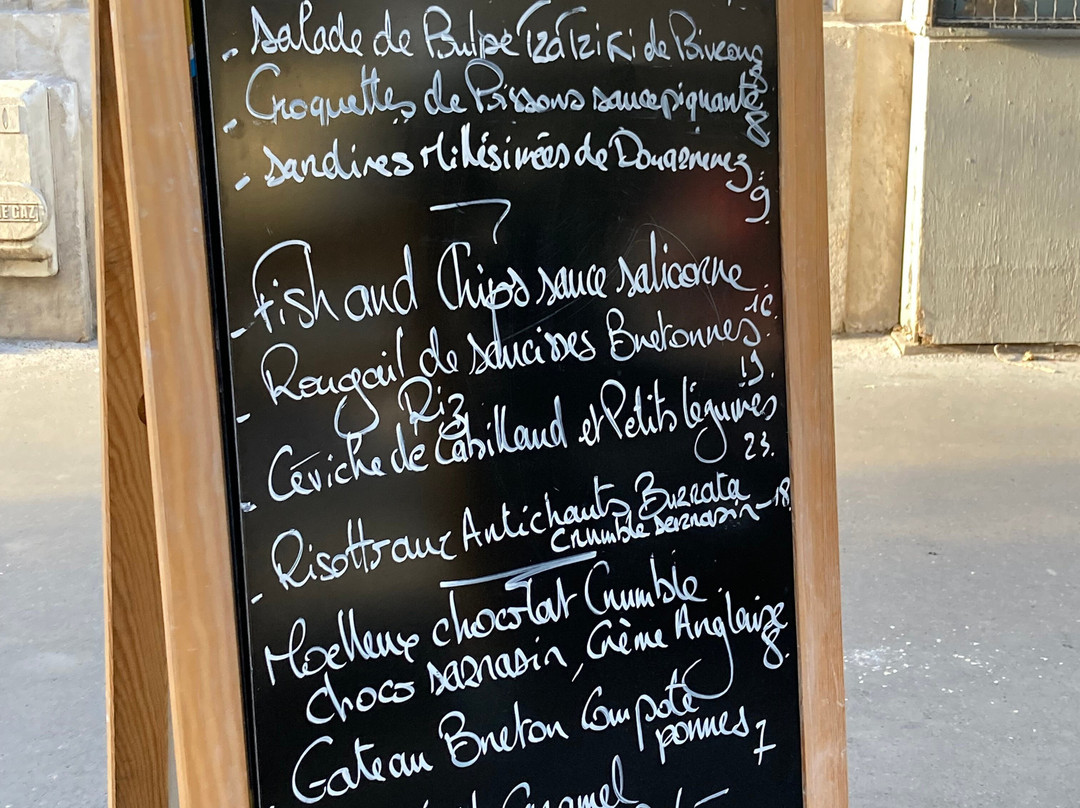 - Salade de Pulpe Tzatziki de Bireons
8
- Croquettes de Poissons sauce piquante
8
- Sardines Millésimées de Douarnenez.
9
- Fish and Chips sauce salicorne
16.
- Rougail de saucisses Bretonnes.
Riz
19.
- Céviche de Cabillaud et Petits légumes
23.
- Risotto aux Antichauts, Burrata
Crumble sarrasin - 18
Moelleux chocolat Crumble
choco sarrasin, Crème Anglaise
8.
Gateau Breton Compote
pommes 7
Caramel
E GAZ